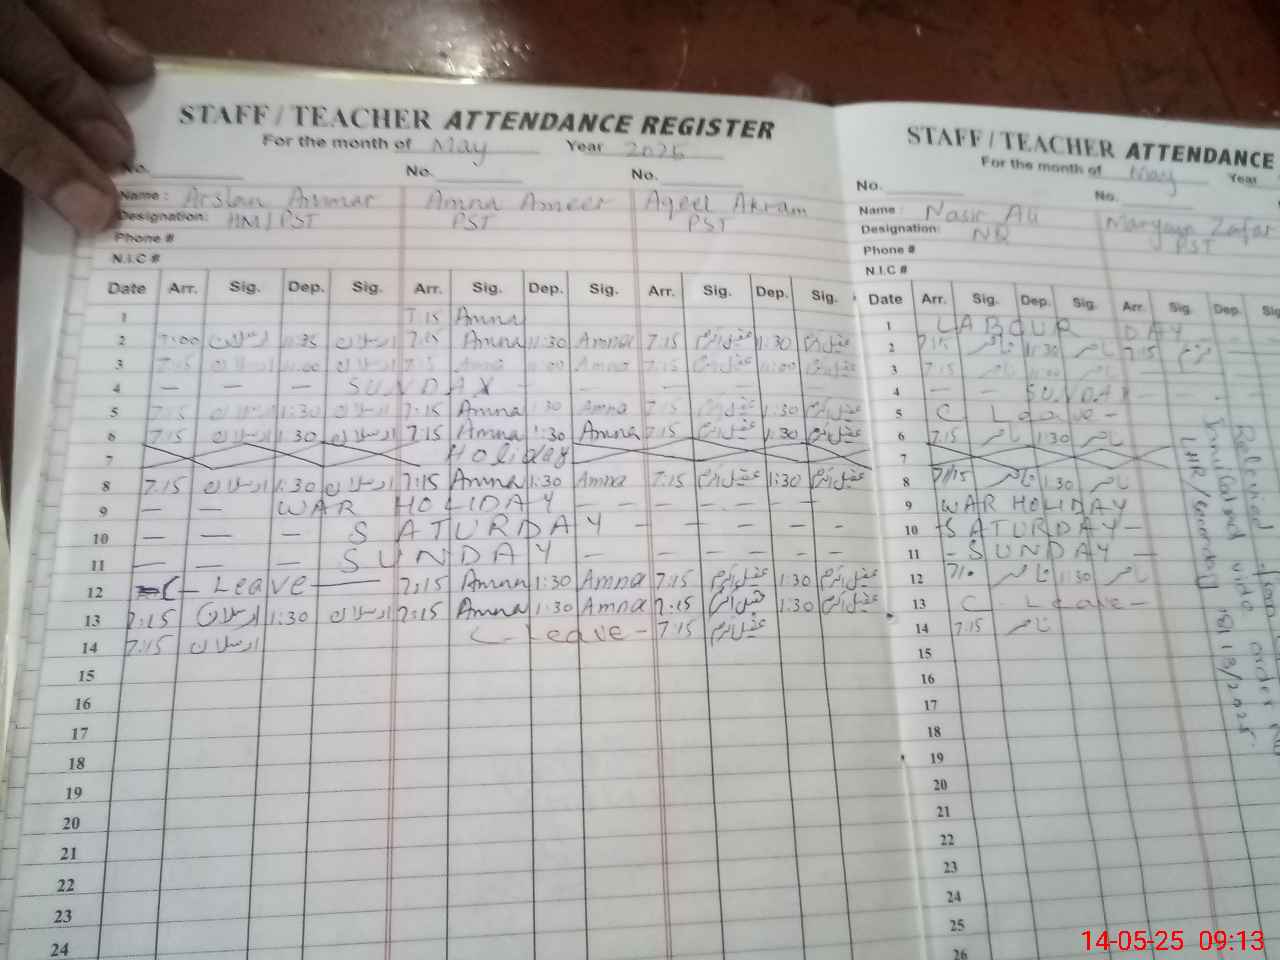 STAFF / TEACHER ATTENDANCE REGISTER
For the month of May Year 2025
No. No. No.
Name: Arslan Ammar Amna Ameer Aqeel Akram
Designation: HM/PST PST PST
Phone #
N.I.C #
Date Arr. Sig. Dep. Sig. Arr. Sig. Dep. Sig. Arr. Sig. Dep. Sig.
1 7:15 Amna
2 7:00 ارسلان ارسلان 7:15 Amna 1:30 Amna 7:15 عقیل اکرم 1:30 عقیل اکرم
3 7:15 ارسلان 1:00 ارسلان 7:15 Amna 1:00 Amna 7:15 عقیل اکرم 1:00 عقیل اکرم
4 — — — SUNDAY — — — — —
5 7:15 ارسلان 1:30 ارسلان 7:15 Amna 1:30 Amna 7:15 عقیل اکرم 1:30 عقیل اکرم
6 7:15 ارسلان 1:30 ارسلان 7:15 Amna 1:30 Amna 7:15 عقیل اکرم 1:30 عقیل اکرم
7 Holiday
8 7:15 ارسلان 1:30 ارسلان 7:15 Amna 1:30 Amna 7:15 عقیل اکرم 1:30 عقیل اکرم
9 — — WAR HOLIDAY — — — — —
10 — — — SATURDAY — — — — —
11 — — — SUNDAY — — — — —
12 C- Leave — 7:15 Amna 1:30 Amna 7:15 عقیل اکرم 1:30 عقیل اکرم
13 7:15 ارسلان 1:30 ارسلان 7:15 Amna 1:30 Amna 7:15 عقیل اکرم 1:30 عقیل اکرم
14 7:15 ارسلان C- Leave - 7:15 عقیل اکرم
15
16
17
18
19
20
21
22
23
24
STAFF / TEACHER ATTENDANCE
For the month of May Year
No. No.
Name: Nasir Ali Maryam Zafar
Designation: NQ PST
Phone #
N.I.C #
Date Arr. Sig. Dep. Sig. Arr. Sig. Dep.
1 LABOUR DAY
2 7:15 ناصر 1:30 ناصر 7:15
3 7:15 ناصر 1:00 ناصر
4 — — SUNDAY —
5 C Leave -
6 7:15 ناصر 1:30 ناصر
7
8 7:15 ناصر 1:30 ناصر
9 WAR HOLIDAY
10 SATURDAY —
11 - SUNDAY —
12 ناصر 1:30 ناصر
13 C - Leave -
14 7:15 ناصر
15
16
17
18
19
20
21
22
23
24
25
26
vide order
14-05-25 09:13